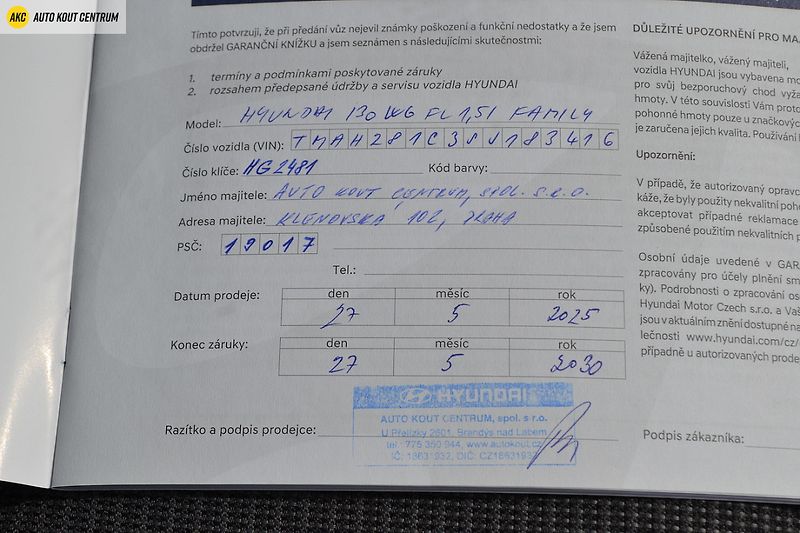 AKC AUTO KOUT CENTRUM
Tímto potvrzuji, že při předání vůz nejevil známky poškození a funkční nedostatky a že jsem
obdržel GARANČNÍ KNÍŽKU a jsem seznámen s následujícími skutečnostmi:
1. termíny a podmínkami poskytované záruky
2. rozsahem předepsané údržby a servisu vozidla HYUNDAI
Model: HYUNDAI i30 WG FL 1,5i FAMILY
Číslo vozidla (VIN): TMAH281C3SJ183416
Číslo klíče: HG2481 Kód barvy:
Jméno majitele: AUTO KOUT CENTRUM, SPOL. S.R.O.
Adresa majitele: KLENOVSKÁ 102, PRAHA
PSČ: 19017
Tel.:
Datum prodeje: den měsíc rok
27 5 2025
Konec záruky: den měsíc rok
27 5 2030
HYUNDAI
AUTO KOUT CENTRUM, spol. s r.o.
U Přeložky 2601, Brandýs nad Labem
tel.: 775 350 944, www.autokout.cz
IČ: 18631932, DIČ: CZ18631932
Razítko a podpis prodejce:
DŮLEŽITÉ UPOZORNĚNÍ PRO MA
Vážená majitelko, vážený majiteli,
vozidla HYUNDAI jsou vybavena mo
pro svůj bezporuchový chod vyža
hmoty. V této souvislosti Vám proto
pohonné hmoty pouze u značkových
je zaručena jejich kvalita. Používání
Upozornění:
V případě, že autorizovaný opravc
káže, že byly použity nekvalitní poh
akceptovat případné reklamace
způsobené použitím nekvalitních p
Osobní údaje uvedené v GAR
zpracovány pro účely plnění sm
ky). Podrobnosti o zpracování os
Hyundai Motor Czech s.r.o. a Vaš
jsou v aktuálním znění dostupné na
lečnosti www.hyundai.com/cz/
případně u autorizovaných prode
Podpis zákazníka: